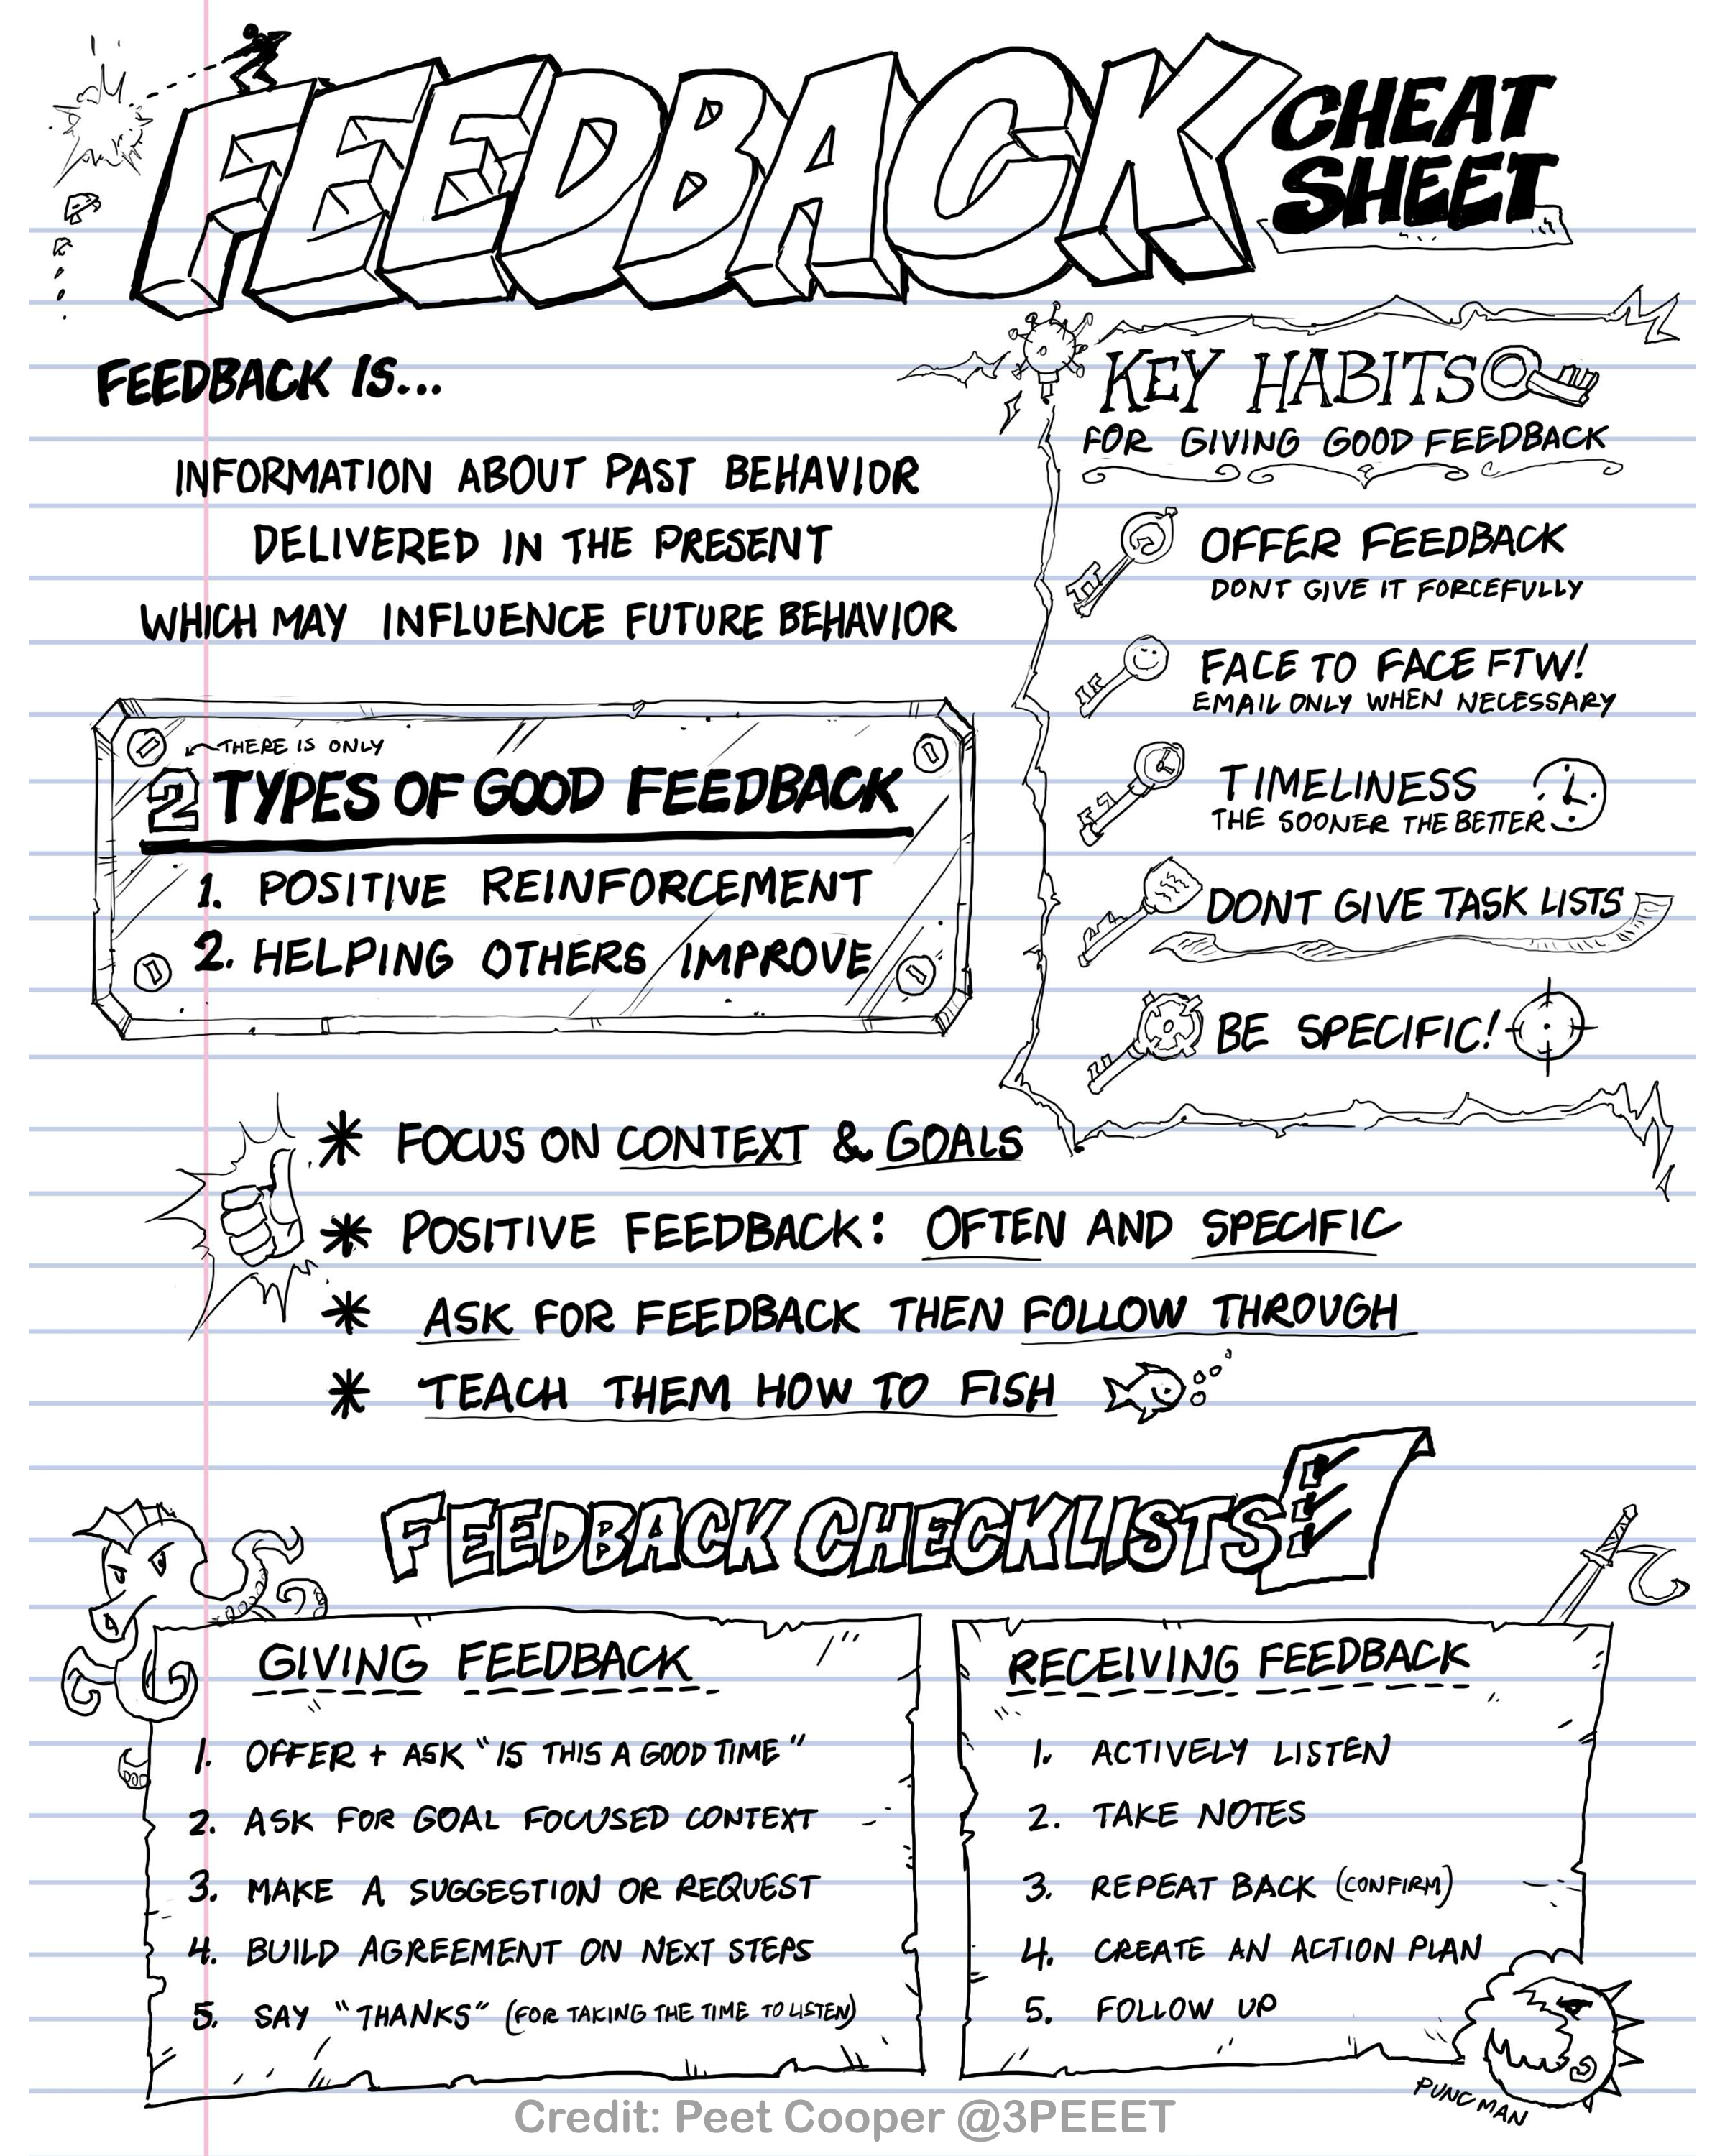 FEEDBACK
CHEAT
SHEET
FEEDBACK IS...
INFORMATION ABOUT PAST BEHAVIOR
DELIVERED IN THE PRESENT
WHICH MAY INFLUENCE FUTURE BEHAVIOR
THERE IS ONLY
2 TYPES OF GOOD FEEDBACK
1. POSITIVE REINFORCEMENT
2. HELPING OTHERS IMPROVE
KEY HABITS
FOR GIVING GOOD FEEDBACK
OFFER FEEDBACK
DONT GIVE IT FORCEFULLY
FACE TO FACE FTW!
EMAIL ONLY WHEN NECESSARY
TIMELINESS
THE SOONER THE BETTER
DONT GIVE TASK LISTS
BE SPECIFIC!
* FOCUS ON CONTEXT & GOALS
* POSITIVE FEEDBACK: OFTEN AND SPECIFIC
* ASK FOR FEEDBACK THEN FOLLOW THROUGH
* TEACH THEM HOW TO FISH
FEEDBACK CHECKLISTS
GIVING FEEDBACK
1. OFFER + ASK "IS THIS A GOOD TIME"
2. ASK FOR GOAL FOCUSED CONTEXT
3. MAKE A SUGGESTION OR REQUEST
4. BUILD AGREEMENT ON NEXT STEPS
5. SAY "THANKS" (FOR TAKING THE TIME TO LISTEN)
RECEIVING FEEDBACK
1. ACTIVELY LISTEN
2. TAKE NOTES
3. REPEAT BACK (CONFIRM)
4. CREATE AN ACTION PLAN
5. FOLLOW UP
PUNCMAN
Credit: Peet Cooper @3PEEET